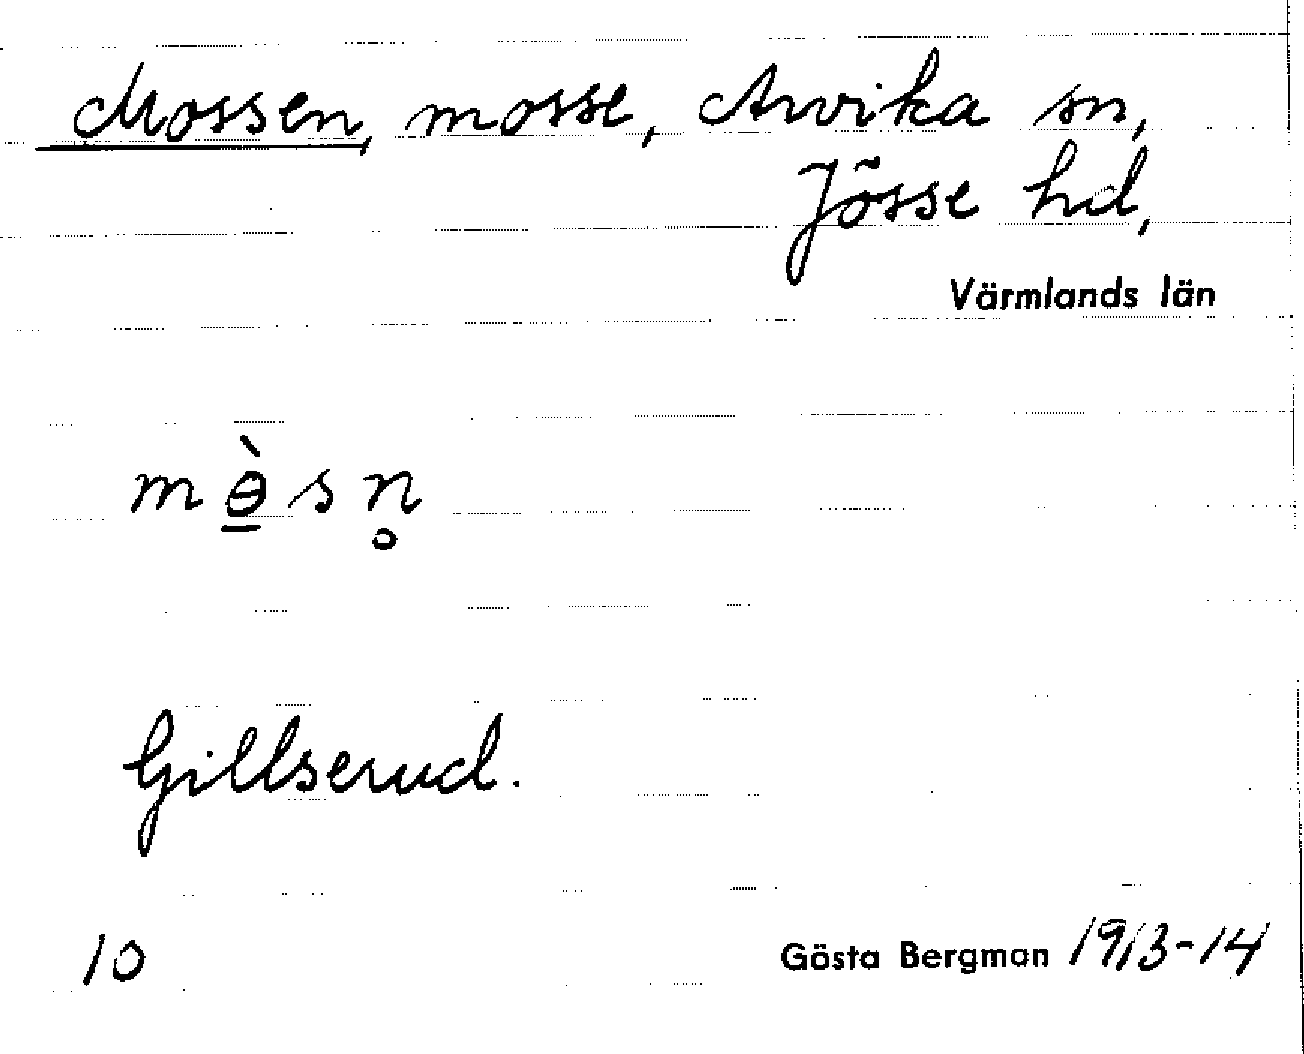 Mossen, mosse, Arvika sn,
Jösse hd,
Värmlands län
m ɵ̱̀ s n̥
Gillserud.
10
Gösta Bergman 1913-14